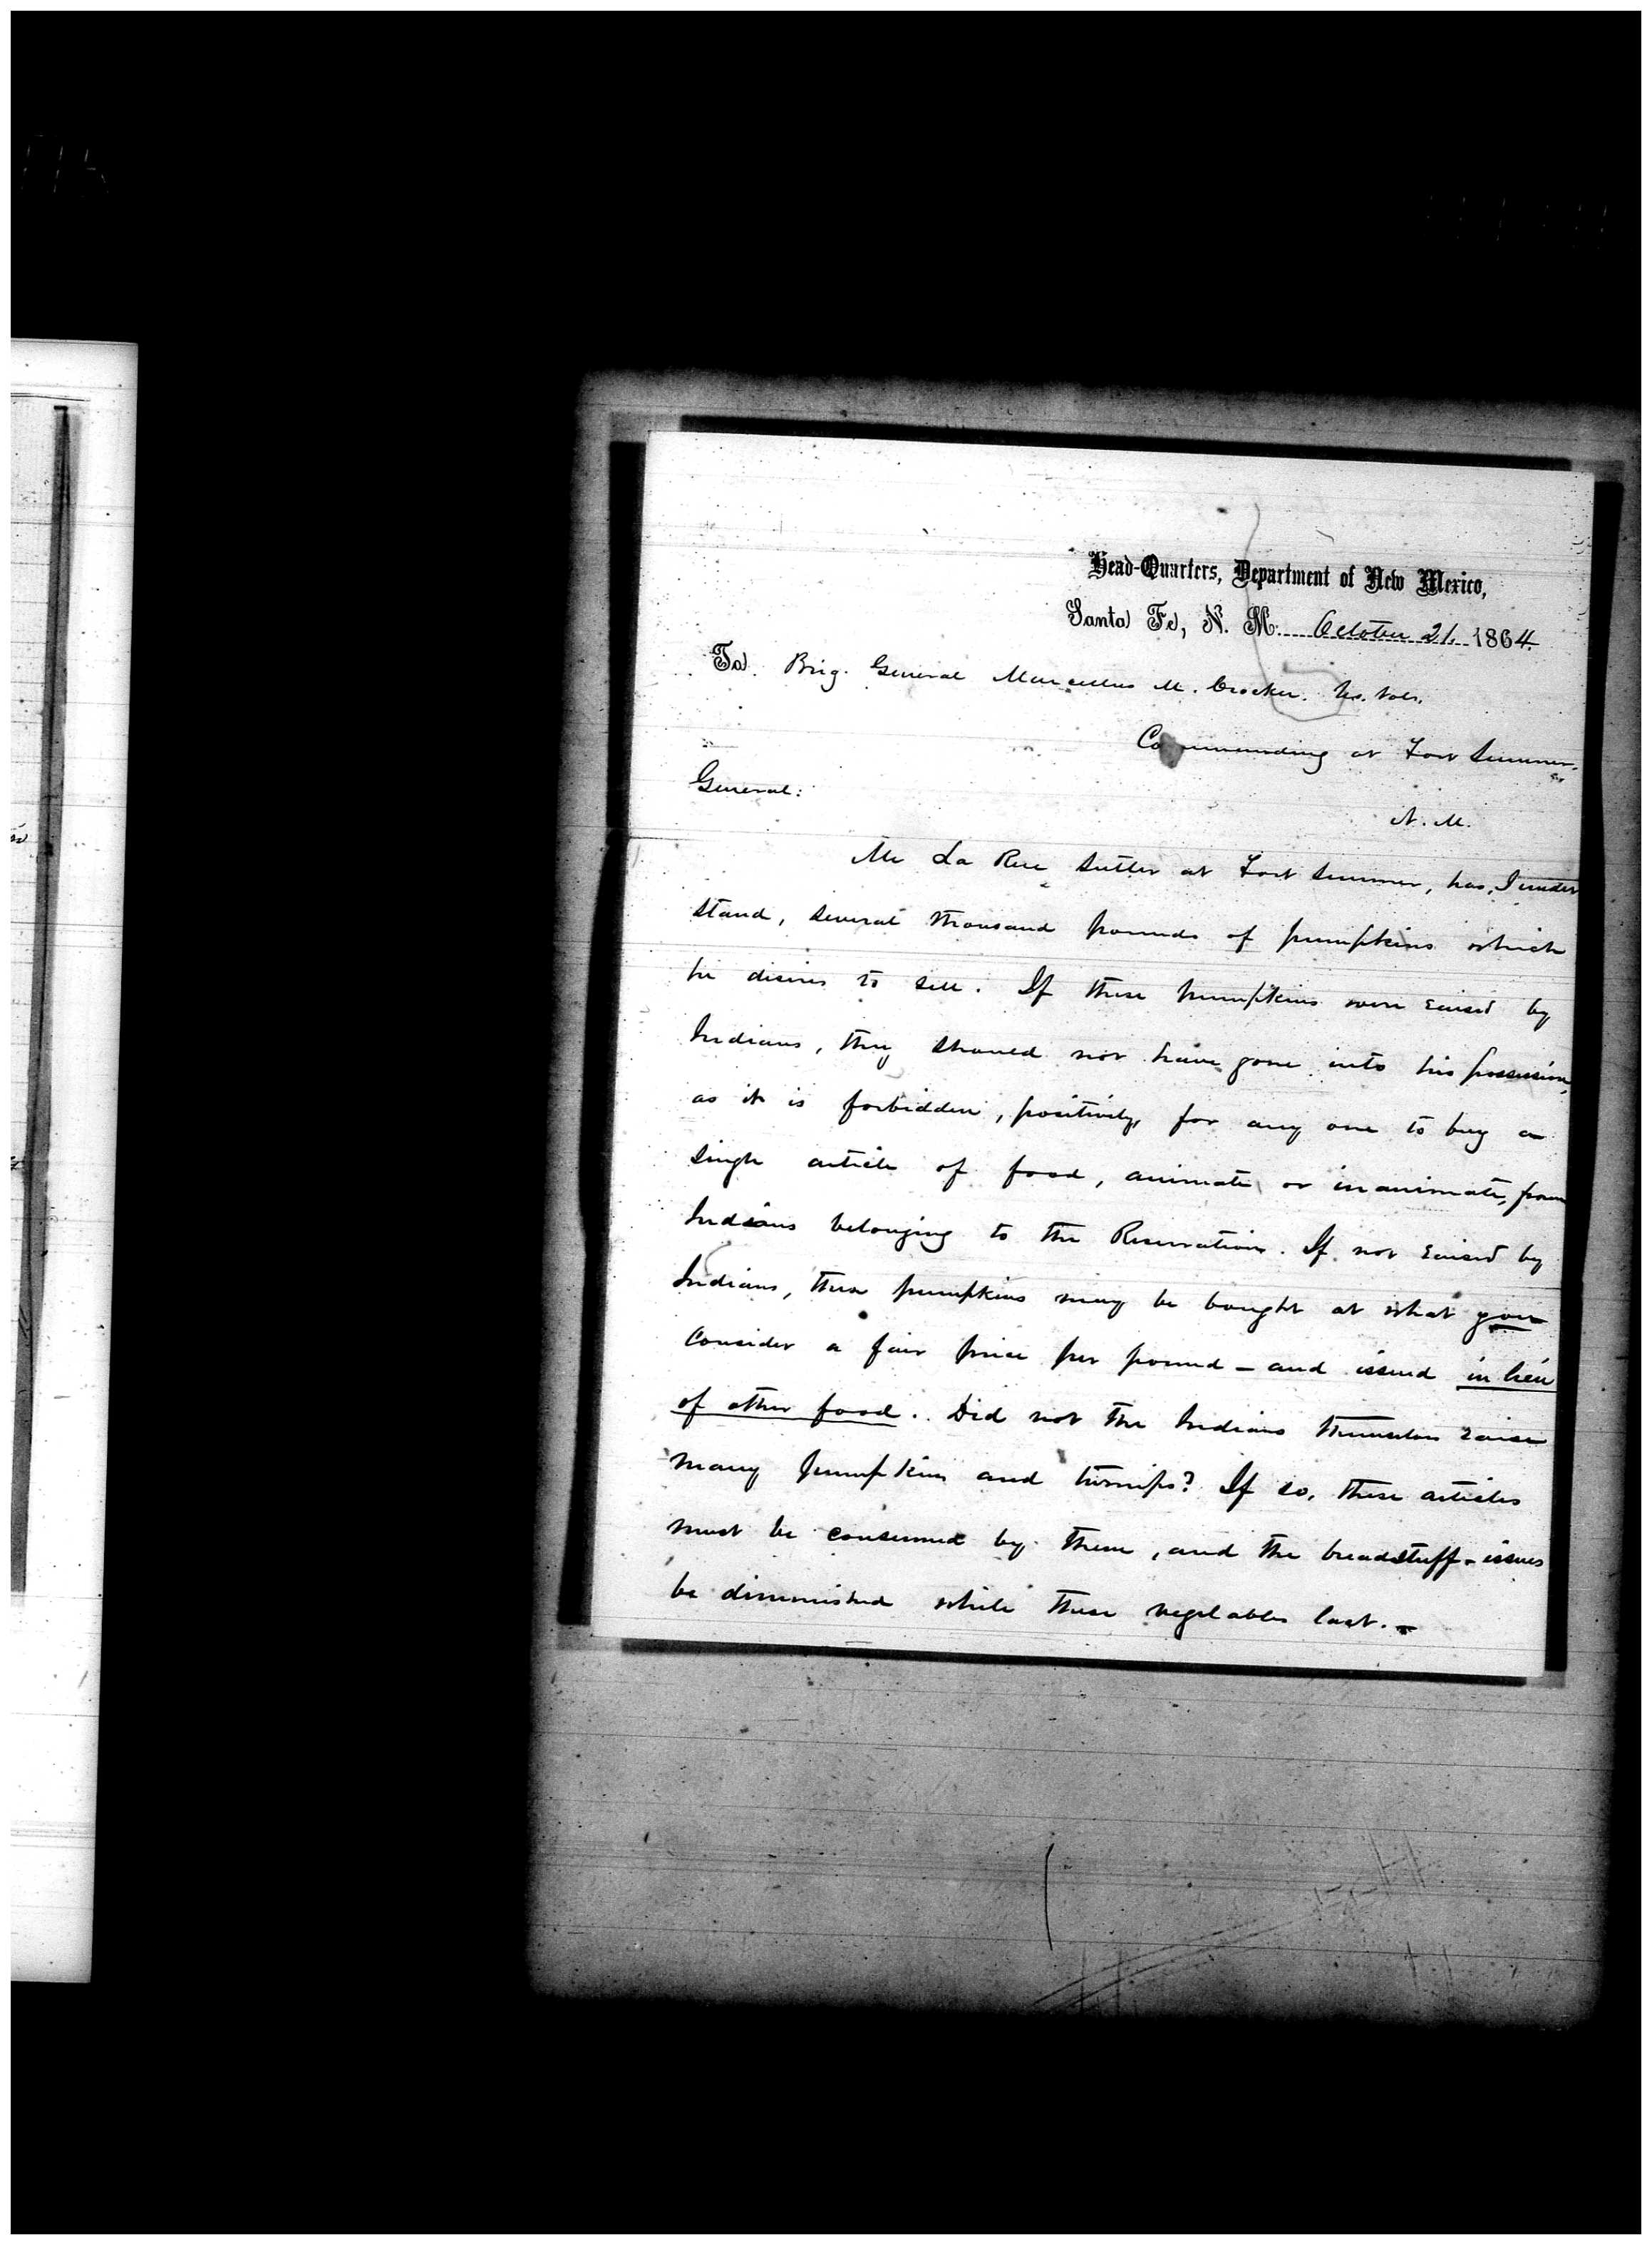 Head-Quarters, Department of New Mexico,
Santa Fe, N. M. October 21. 1864.
To Brig. General Marcellus M. Crocker. U.S. Vols.
Commanding at Fort Sumner,
N. M.
General:
Mr La Rue Sutler at Fort Sumner, has, I under
stand, several thousand pounds of pumpkins which
he desires to sell. If these pumpkins were raised by
Indians, they should not have gone into his possession,
as it is forbidden, positively, for any one to buy a
single article of food, animate or inanimate, from
Indians belonging to the Reservation. If not raised by
Indians, these pumpkins may be bought at what you
consider a fair price per pound - and issued in lieu
of other food. Did not the Indians themselves raise
many pumpkins and turnips? If so, these articles
must be consumed by them, and the breadstuff-issues
be diminished while these vegetables last. -